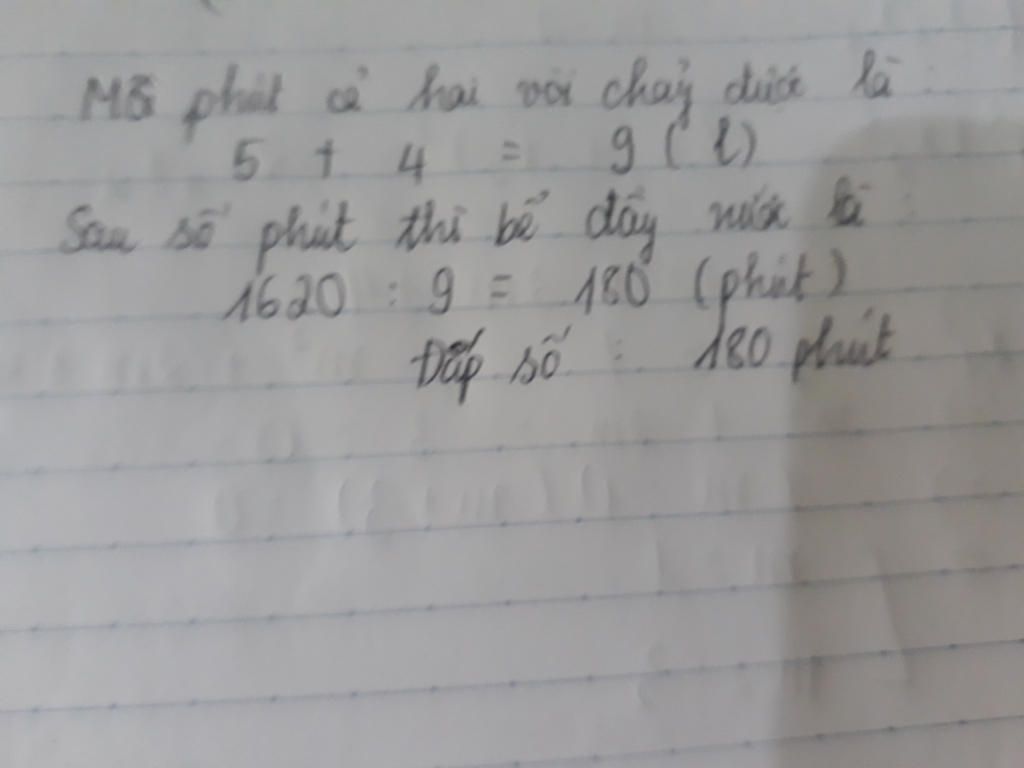 Mỗi phút cả hai vòi chảy được là :
5 + 4 = 9 ( l )
Sau số phút thì bể đầy nước là :
1620 : 9 = 180 (phút)
Đấp số : 180 phút